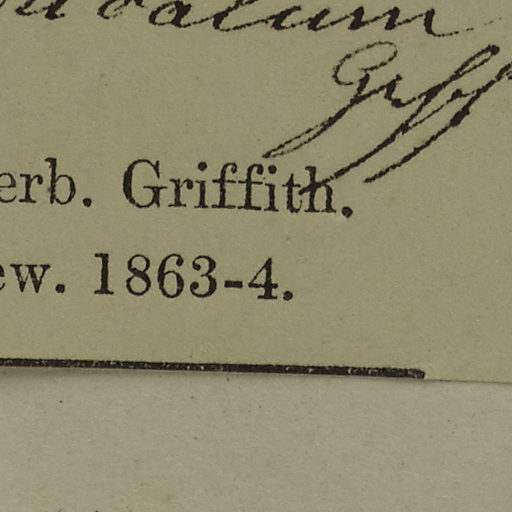 Griff
erb. Griffith.
ew. 1863-4.